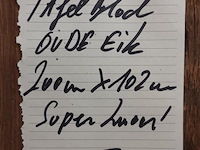 Tafel blad
OUDE Eik
200cm x 102cm
Super mooi!